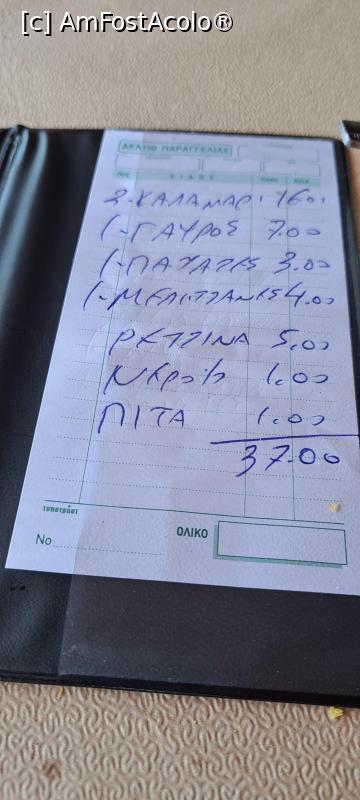 [c] AmFostAcolo®
ΔΕΛΤΙΟ ΠΑΡΑΓΓΕΛΙΑΣ
ΕΙΔΟΣ
2-ΚΑΛΑΜΑΡΙ 16.00
1-ΓΑΥΡΟΣ 7.00
1-ΠΑΤΑΤΕΣ 3.00
1-ΜΕΛΙΤΖΑΝΕΣ 4.00
ΡΕΤΣΙΝΑ 5.00
ΝΕΡΟ 1.00
ΠΙΤΑ 1.00
37.00
τυποτράστ
ΟΛΙΚΟ
No